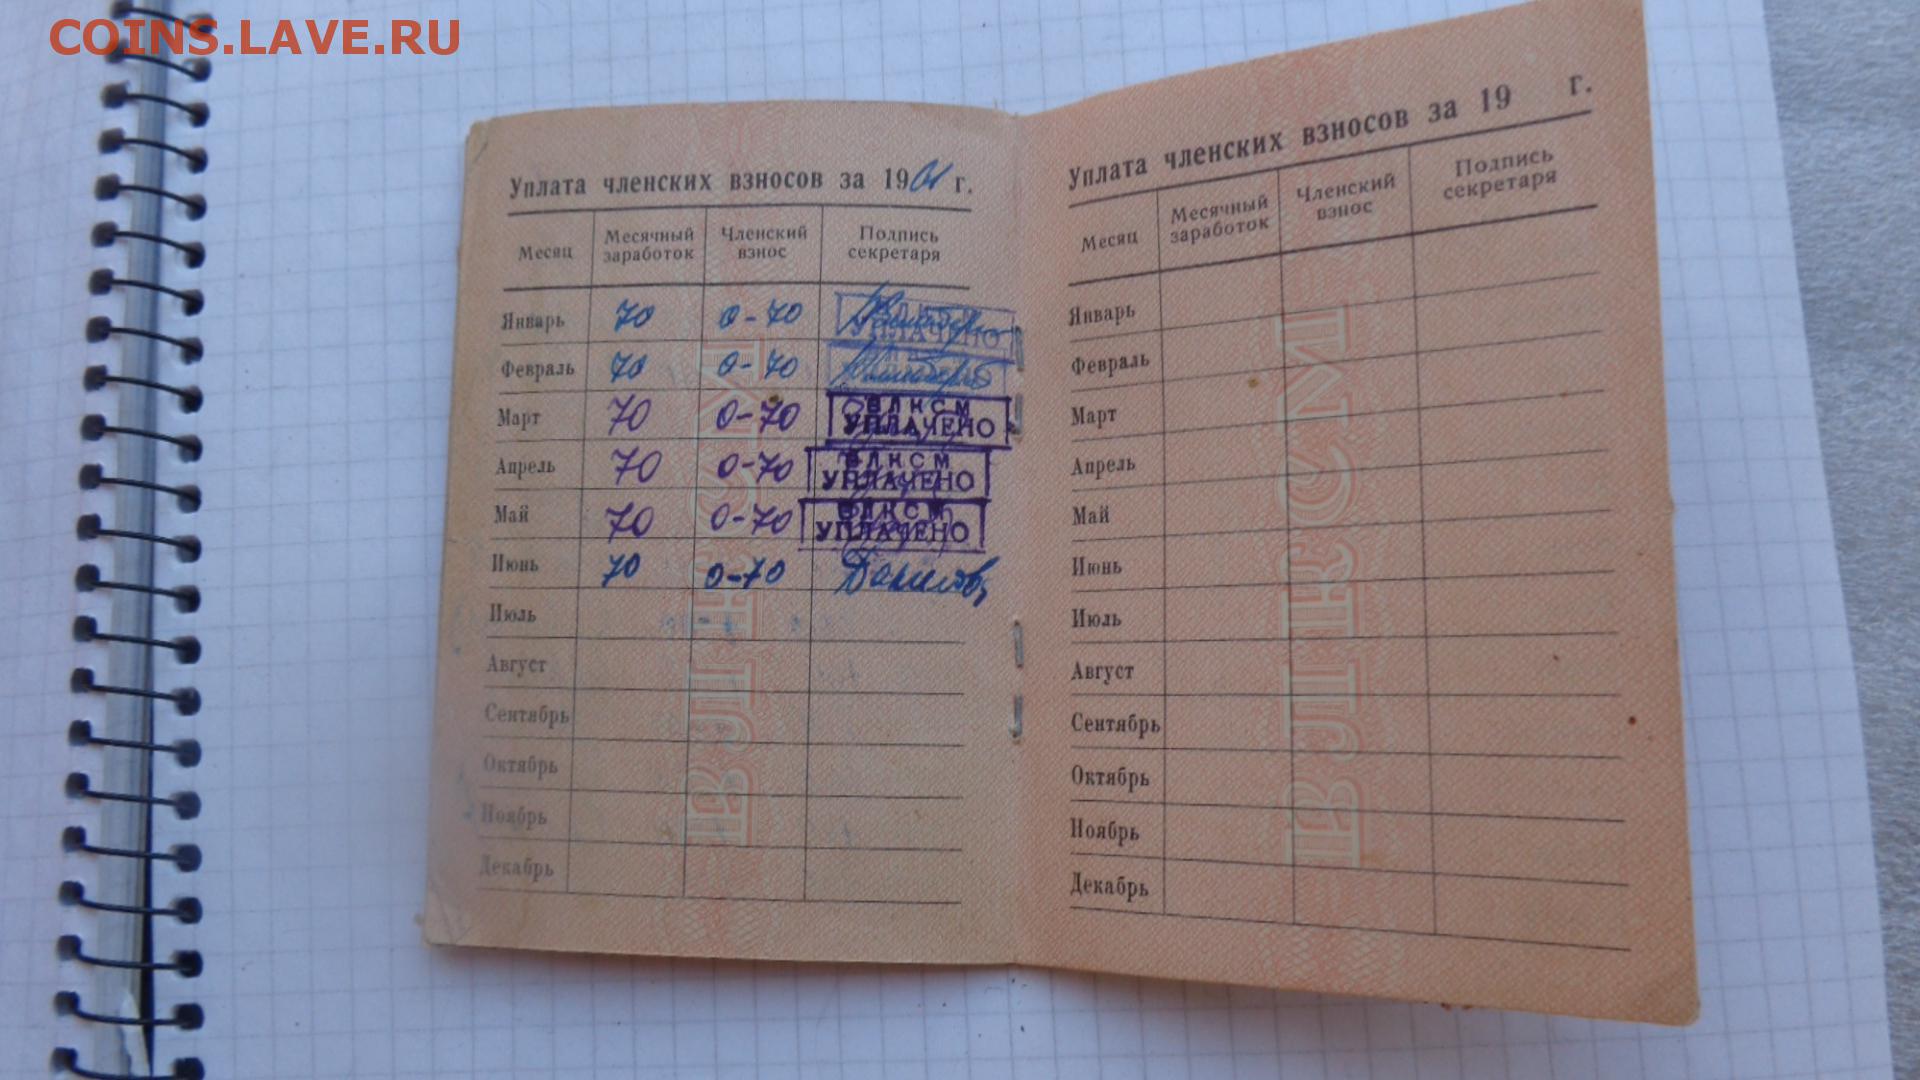 COINS.LAVE.RU
Уплата членских взносов за 1961 г.
Месяц Месячный заработок Членский взнос Подпись секретаря
Январь 70 0-70 УПЛАЧЕНО
Февраль 70 0-70
Март 70 0-70 ВЛКСМ УПЛАЧЕНО
Апрель 70 0-70 ВЛКСМ УПЛАЧЕНО
Май 70 0-70 ВЛКСМ УПЛАЧЕНО
Июнь 70 0-70
Июль
Август
Сентябрь
Октябрь
Ноябрь
Декабрь
ВЛКСМ
Уплата членских взносов за 19 г.
Месяц Месячный заработок Членский взнос Подпись секретаря
Январь
Февраль
Март
Апрель
Май
Июнь
Июль
Август
Сентябрь
Октябрь
Ноябрь
Декабрь
ВЛКСМ